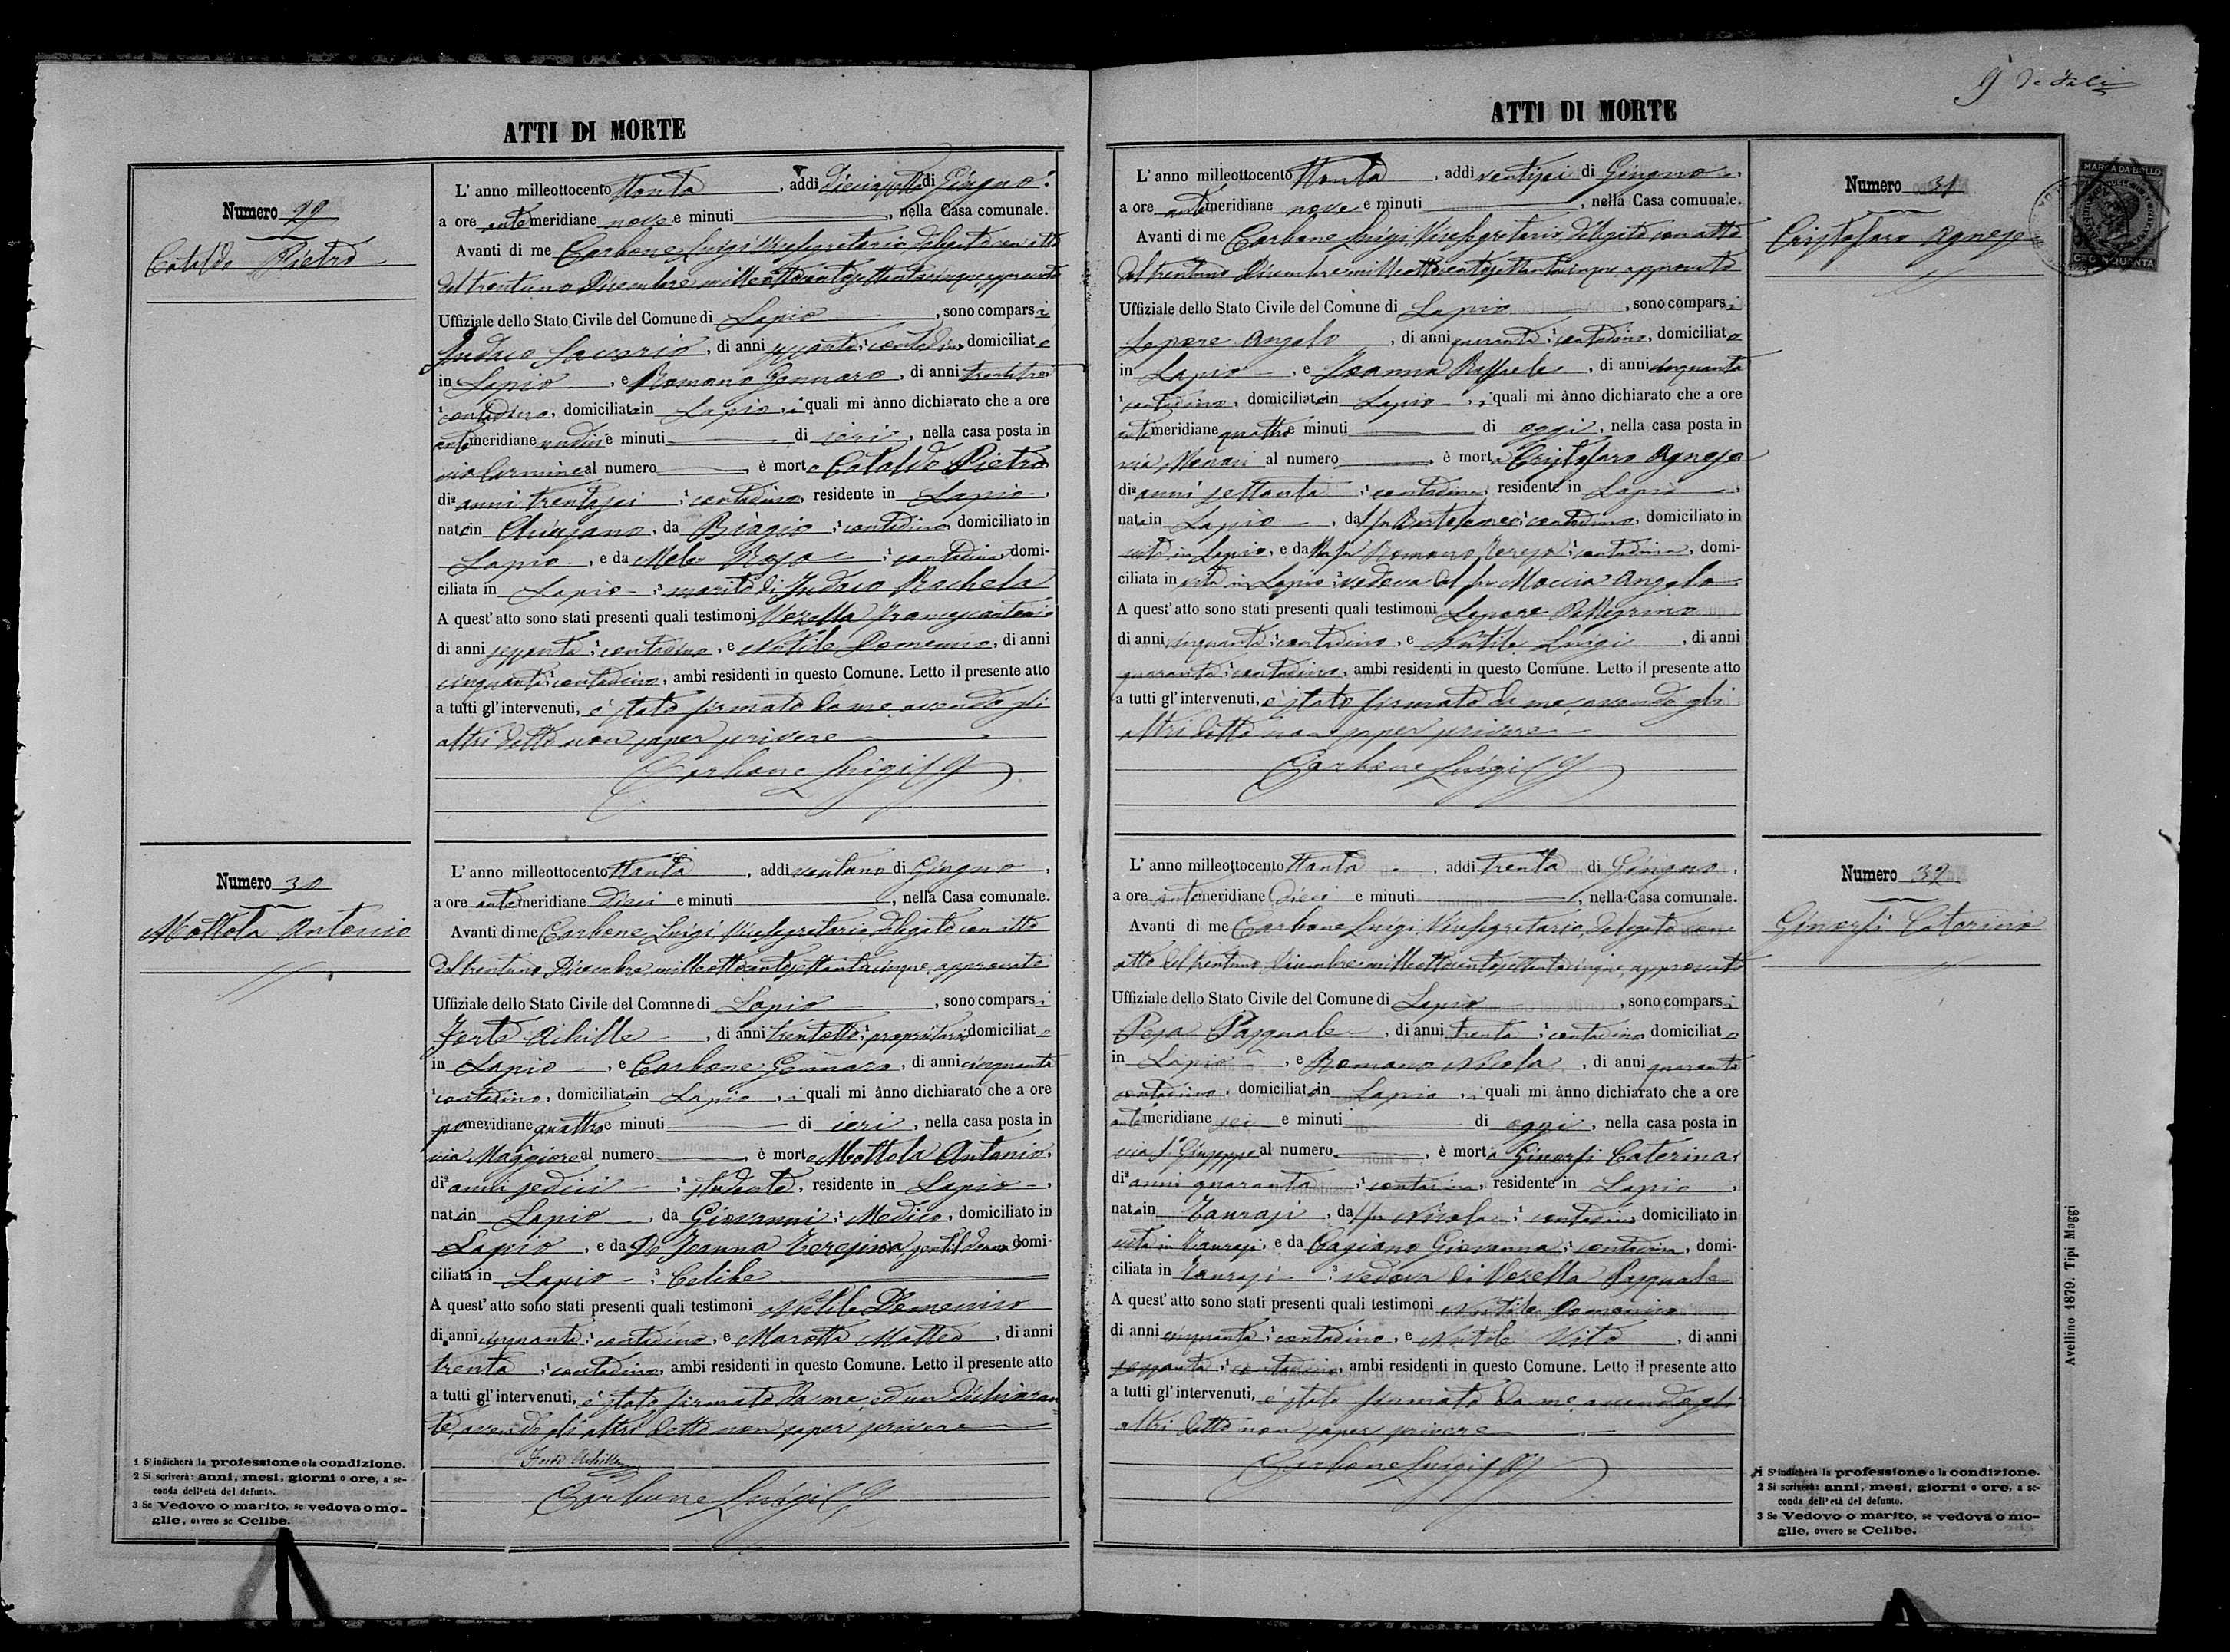 ATTI DI MORTE
Numero 29
Cataldo Pietro
L' anno milleottocento ttanta, addi diciassette di Giugno,
a ore antemeridiane nove e minuti, nella Casa comunale.
Avanti di me Carbone Luigi Vicesegretario delegato con atto
del trentuno Dicembre milleottocentosettantacinque approvato
Uffiziale dello Stato Civile del Comune di Lapio, sono comparsi
Judaco Saverio, di anni contadino domiciliato
in Lapio, e Romano Gennaro, di anni trentatre
contadino, domiciliato in Lapio, i quali mi ànno dichiarato che a ore
antemeridiane undici e minuti di ieri, nella casa posta in
via Carmine al numero, è morto Cataldo Pietro
di anni trentasei contadino, residente in Lapio,
nato in Chiusano, da Biagio, contadino, domiciliato in
Lapio, e da Mele Rosa contadina domi-
ciliata in Lapio marito di Judaco Rachela
A quest' atto sono stati presenti quali testimoni Vozella Francescantonio
di anni sessanta contadino, e Nutile Domenico, di anni
cinquanta contadino, ambi residenti in questo Comune. Letto il presente atto
a tutti gl' intervenuti, è stato firmato da me avendo gli
altri detto non saper scrivere
Carbone Luigi
Numero 30
Mottola Antonio
L' anno milleottocento ttanta, addi ventuno di Giugno,
a ore antemeridiane dieci e minuti, nella Casa comunale.
Avanti di me Carbone Luigi Vicesegretario delegato con atto
del trentuno Dicembre milleottocentosettantacinque approvato
Uffiziale dello Stato Civile del Comnne di Lapio, sono comparsi
Forte Achille, di anni trentotto, proprietario domiciliato
in Lapio, e Carbone Gennaro, di anni cinquanta
contadino, domiciliato in Lapio, i quali mi ànno dichiarato che a ore
pomeridiane quattro e minuti di ieri, nella casa posta in
via Maggiore al numero, è morto Mottola Antonio,
di anni sedici studente, residente in Lapio,
nato in Lapio, da Giovanni, Medico, domiciliato in
Lapio, e da De Jeanna Teresina gentildonna domi-
ciliata in Lapio Celibe
A quest' atto sono stati presenti quali testimoni Nutile Domenico
di anni cinquanta, contadino, e Marotta Matteo, di anni
trenta contadino, ambi residenti in questo Comune. Letto il presente atto
a tutti gl' intervenuti, è stato firmato da me ed un dichiaran
te, avendo gli altri detto non saper scrivere
Forte Achille
Carbone Luigi
1 S'indicherà la professione o la condizione.
2 Si scriverà: anni, mesi, giorni o ore, a se-
conda dell'età del defunto.
3 Se Vedovo o marito, se vedova o mo-
glie, ovvero se Celibe.
ATTI DI MORTE
L' anno milleottocento ttanta, addi ventisei di Giugno,
a ore antemeridiane nove e minuti, nella Casa comunale.
Avanti di me Carbone Luigi Vicesegretario delegato con atto
del trentuno Dicembre milleottocentosettantacinque approvato
Uffiziale dello Stato Civile del Comune di Lapio, sono comparsi
Lepore Angelo, di anni quaranta, contadino, domiciliato
in Lapio, e Jeanna Raffaele, di anni cinquanta
contadino, domiciliato in Lapio, i quali mi ànno dichiarato che a ore
antemeridiane quattro e minuti di oggi, nella casa posta in
via al numero, è morta Cristofaro Agnesa
di anni settanta contadina, residente in Lapio,
nata in Lapio, da fu Bartolomeo, contadino, domiciliato in
vita in Lapio, e da fu Romano Teresa, contadina, domi-
ciliata in vita in Lapio vedova del fu Moccia Angelo
A quest' atto sono stati presenti quali testimoni Lepore Pellegrino
di anni cinquanta, contadino, e Nutile Luigi, di anni
quaranta, contadino, ambi residenti in questo Comune. Letto il presente atto
a tutti gl' intervenuti, è stato firmato da me, avendo gli
altri detto non saper scrivere
Carbone Luigi
Numero 31
Cristofaro Agnesa
MARCA DA BOLLO
CMI CINQUANTA
L' anno milleottocento ttanta, addi trenta di Giugno,
a ore antemeridiane dieci e minuti, nella Casa comunale.
Avanti di me Carbone Luigi Vicesegretario, delegato con
atto del trentuno Dicembre milleottocentosettantacinque, approvato
Uffiziale dello Stato Civile del Comune di Lapio, sono comparsi
Pesa Pasquale, di anni trenta, contadino domiciliato
in Lapio, e Romano Nicola, di anni quaranta
contadino, domiciliato in Lapio, i quali mi ànno dichiarato che a ore
antemeridiane sei e minuti di oggi, nella casa posta in
via S. Giuseppe al numero, è morta Ginorsi Caterina,
di anni quaranta contadina, residente in Lapio,
nata in Taurasi, da fu Nicola, contadino domiciliato in
vita in Taurasi, e da Cagiano Giovanna, contadina, domi-
ciliata in Taurasi vedova di Vozella Pasquale
A quest' atto sono stati presenti quali testimoni Nutile Domenico
di anni cinquanta, contadino, e Nutile Vito, di anni
sessanta, contadino, ambi residenti in questo Comune. Letto il presente atto
a tutti gl' intervenuti, è stato firmato da me avendo gli
altri detto non saper scrivere
Carbone Luigi
Numero 32
Ginorsi Caterina
1 S'indicherà la professione o la condizione.
2 Si scriverà: anni, mesi, giorni o ore, a se-
conda dell'età del defunto.
3 Se Vedovo o marito, se vedova o mo-
glie, ovvero se Celibe.
Avellino 1879. Tipi Maggi